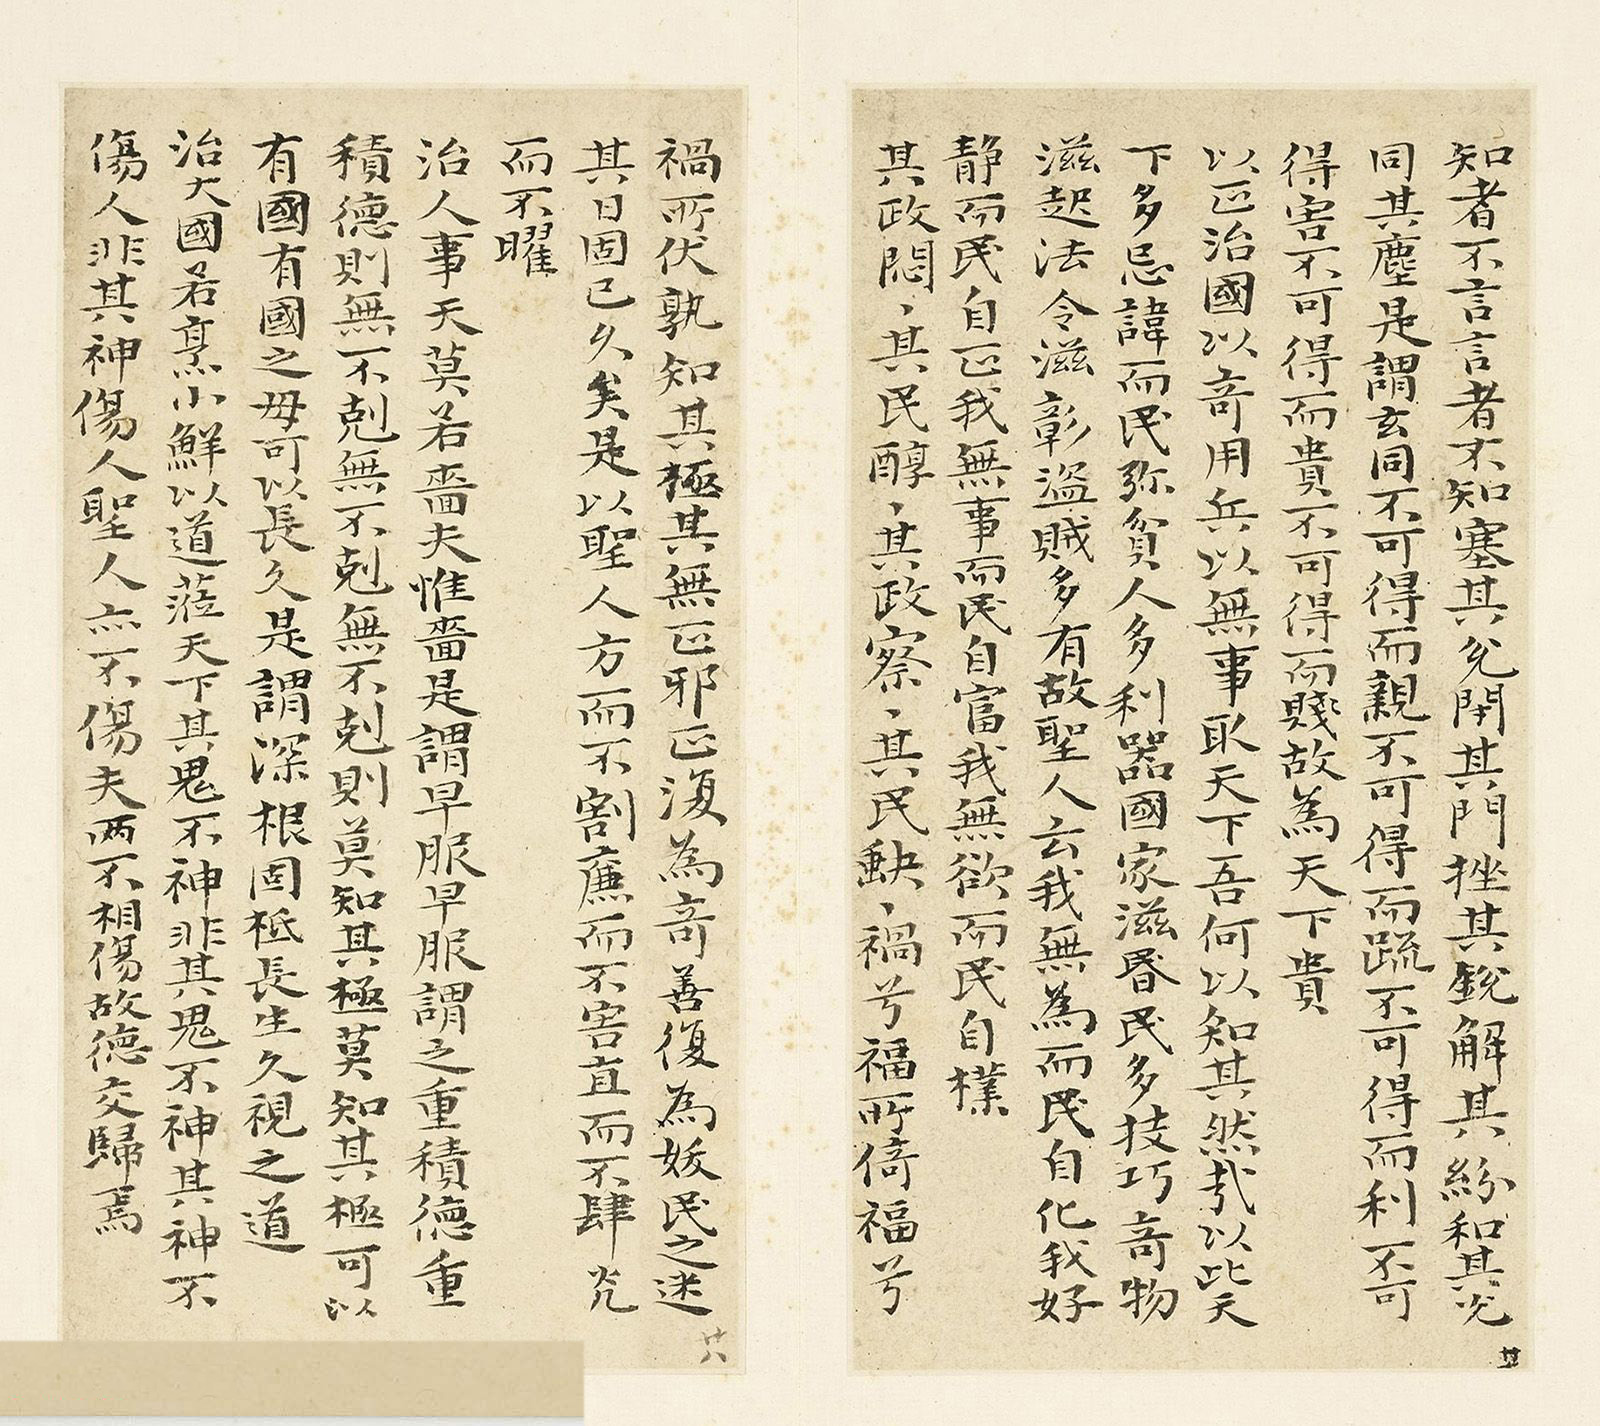 知者不言言者不知塞其兊閇其門挫其銳解其紛和其光
同其塵是謂玄同不可得而親不可得而踈不可得而利不可
得害不可得而貴不可得而賤故為天下貴
以正治國以竒用兵以無事取天下吾何以知其然㦲以此天
下多忌諱而民弥貧人多利器國家滋昬民多技巧竒物
滋起法令滋彰盜賊多有故聖人云我無為而民自化我好
静而民自正我無事而民自富我無欲而民自樸
其政悶、其民醇、其政察、其民缺、禍兮福所倚福兮
禍所伏孰知其極其無正邪正復為竒善復為妖民之迷
其日固已久矣是以聖人方而不割廉而不害直而不肆光
而不曜
治人事天莫若嗇夫惟嗇是謂早服早服謂之重積德重
積德則無不剋無不剋無不剋則莫知其極莫知其極可以
有國有國之母可以長久是謂深根固柢長生久視之道
治大國若烹小鮮以道蒞天下其鬼不神非其鬼不神其神不
傷人非其神傷人聖人亦不傷夫兩不相傷故德交歸焉
廿八